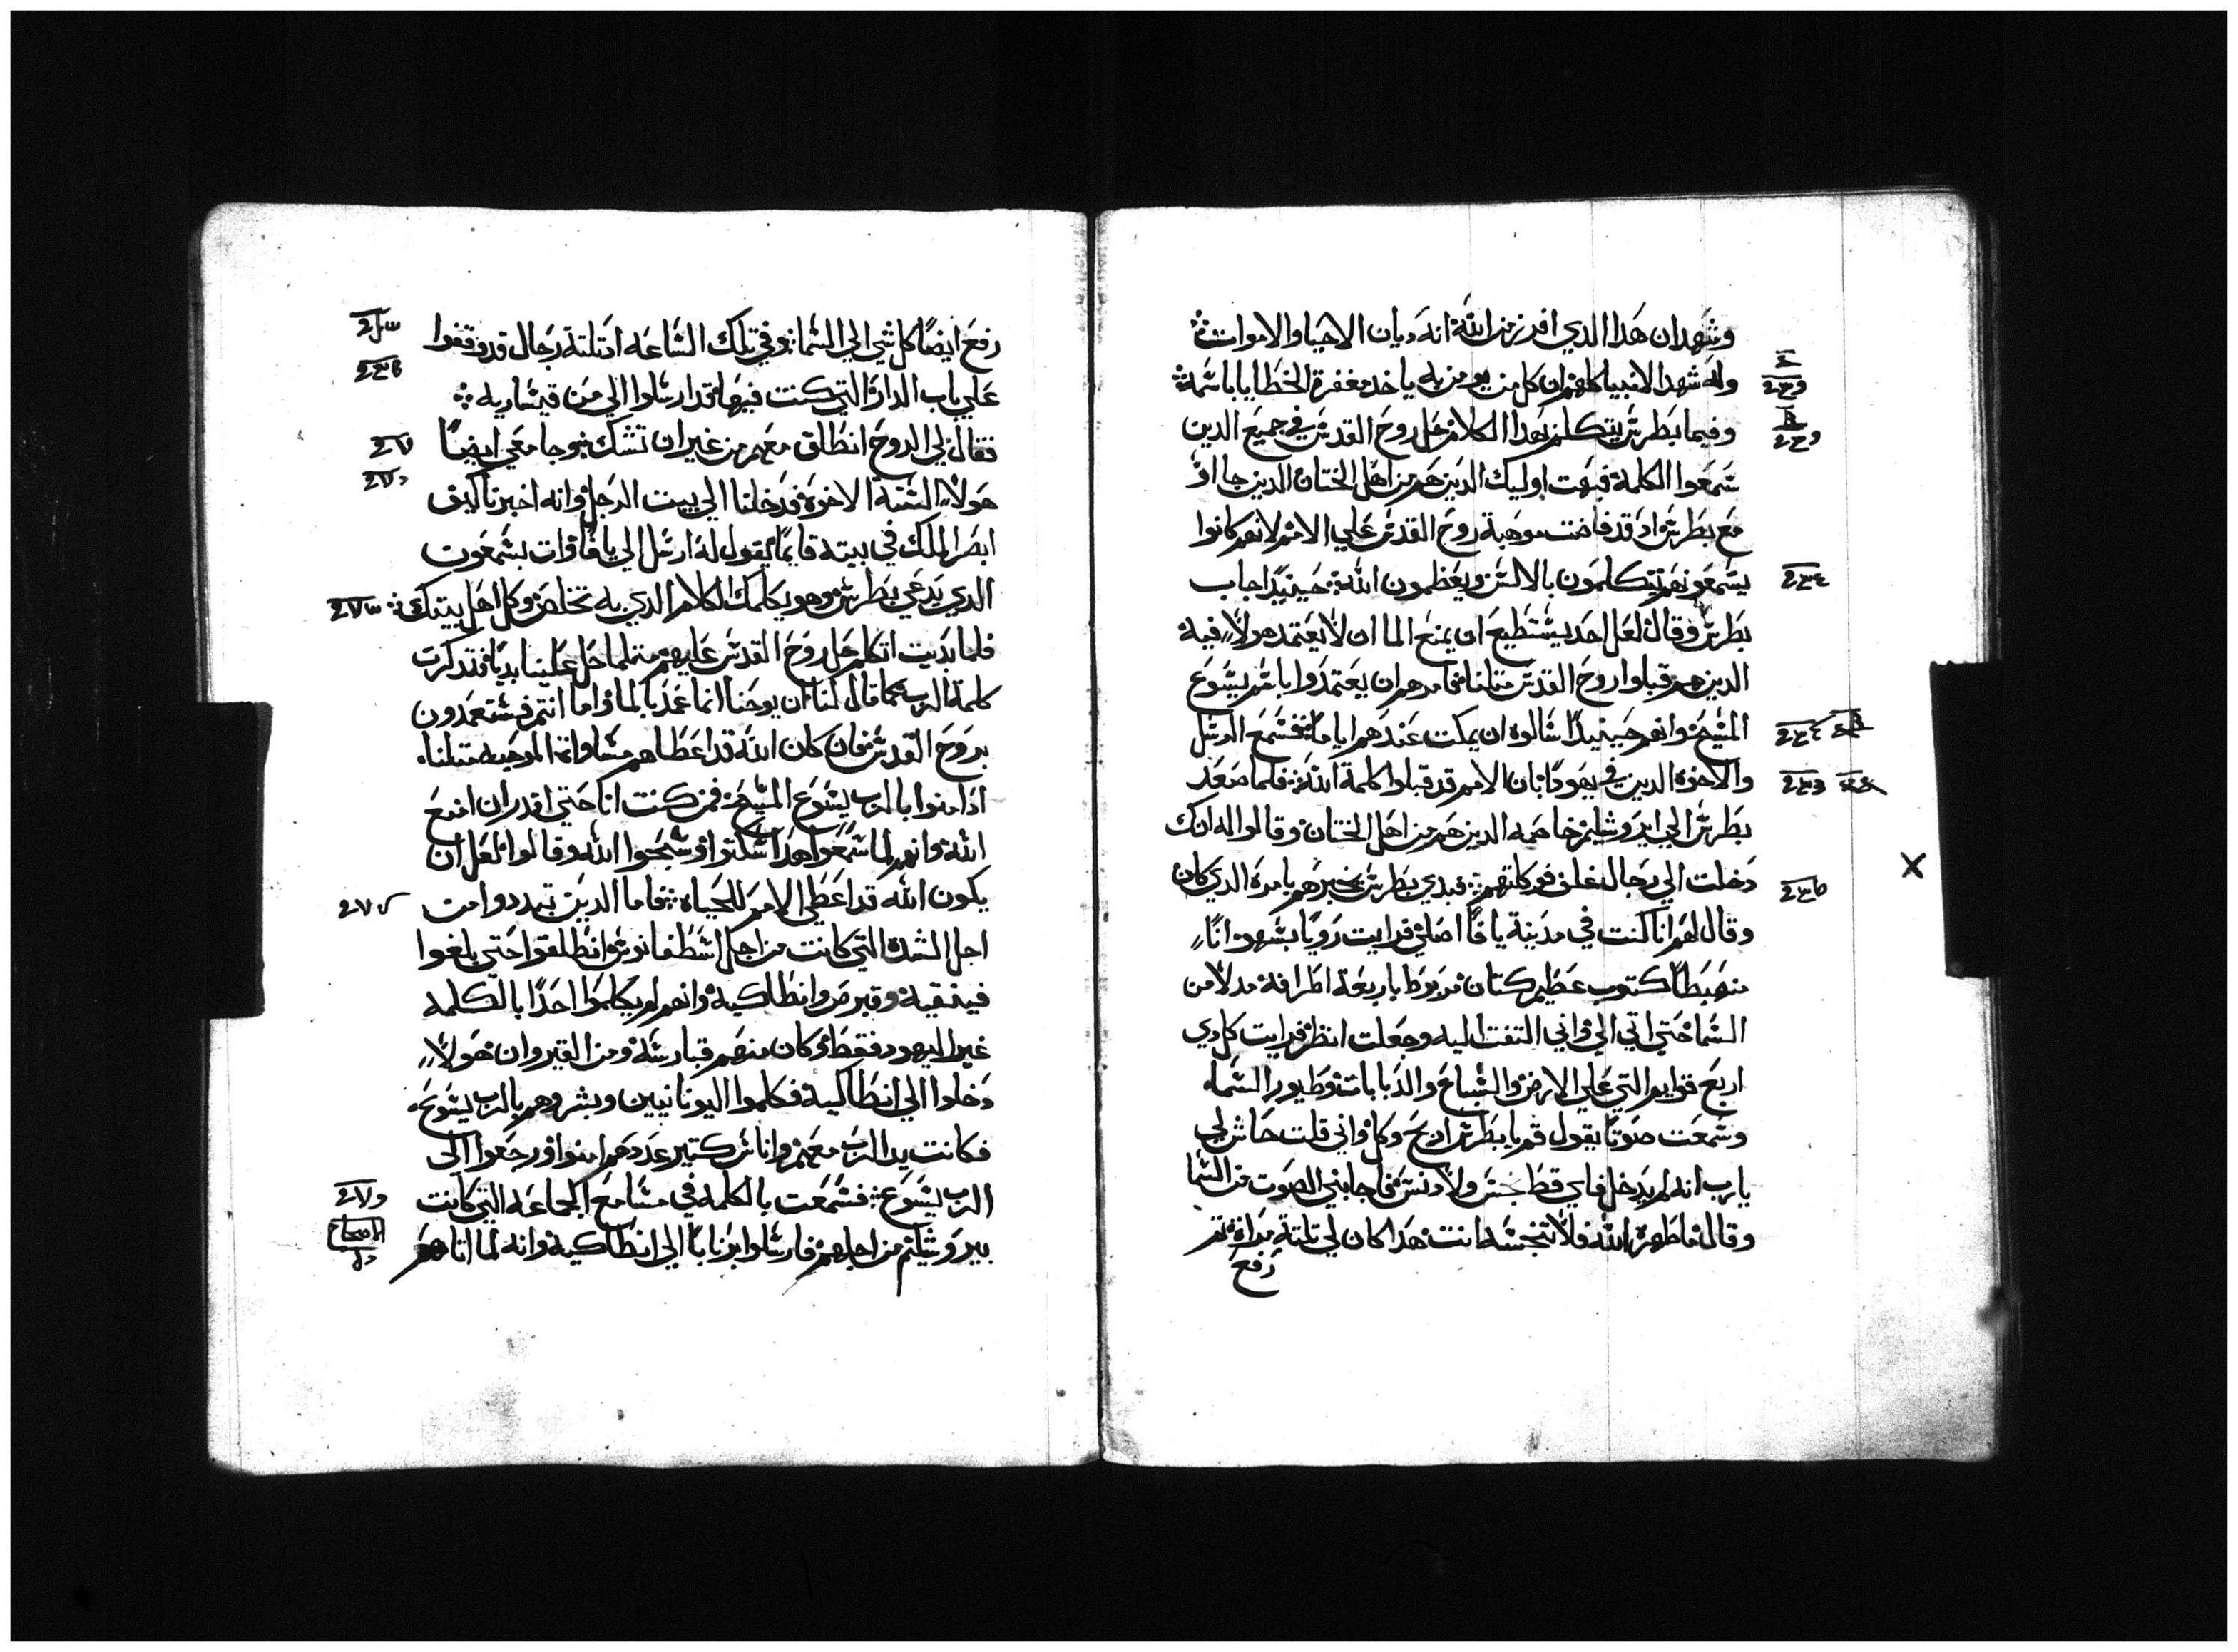 وشهد ان هدا الدي افرز من الله انه ديان الاحيا والاموات
وله شهد الانبيا كلهم ان كل من يومن به ياخد مغفرة الخطايا باسمه
وفيما بطرس يتكلم بهدا الكلام حل روح القدس في جميع الدين
سمعوا الكلمة فبهت اوليك الدين هم من اهل الختان الدين جااو
مع بطرس اد قد فاضت موهبة روح القدس علي الامم لانهم كانوا
يسمعونهم يتكلمون بالالسن ويعظمون الله حينيدًا اجاب
بطرس وقال لعل احد يستطيع ان يمنع الما ان لا يعتمد هولاء فيه
الدين هم قبلوا روح القدس متلنا فامرهم ان يعتمدوا باسم يسوع
المسيح وانهم حينيدًا سالوه ان يمكت عندهم ايامًا فسمع الرسل
والاخوة الدين في يهودا بان الامم قد قبلوا كلمة الله فلما صعد
بطرس الي ايروشليم خاصمه الدين هم من اهل الختان وقالوا له انك
دخلت الي رجال غلف فوركلتهم فبدي بطرس يخبرهم بامره الدي كان
وقال لهم انا كنت في مدينة يافا اصلي فرايت رويا بسهو اناء
منهبطًا كتوب عظيم كتان مربوط باربعة اطرافه مدلا من
السما حتي اتي الي واني التفت اليه وجعلت انظر فرايت كل دي
اربع قوايم التي علي الارض والسباع والدبابات وطيور السما
وسمعت صوتًا يقول قم يا بطرس ادبح وكل واني قلت حاش لي
يا رب انه لم يدخل فاي قط نجس ولا دنس فاجابني الصوت من السما
وقال ما طهره الله فلا تنجسه انت هدا كان لي تلتة مرات تم
رفع
رفع ايضًا كل شي الي السما وفي تلك الساعه اد تلتة رجال قد وقفوا
علي باب الدار التي كنت فيها قد ارسلوا الي من قيساريه
فقال لي الروح انطلق معهم من غير ان تشك وجا معي ايضًا
هولاء الستة الاخوة فدخلنا الي بيت الرجل وانه اخبرنا كيف
ابصر الملك في بيته قايمًا يقول له ارسل الي يافا وات بسمعون
الدي يدعي بطرس وهو يكلمك الكلام الدي به تخلص وكل اهل بيتك
فلما بديت اتكلم حل روح القدس عليهم متلما حل علينا بديا فتدكرت
كلمة الرب كما قال لنا ان يوحنا انما عمد بالما واما انتم فستعمدون
بروح القدس فان كان الله قد اعطاهم مساواة الموهبه متلنا
ادامنوا بالرب يسوع المسيح فمن كنت انا حتي اقدر ان امنع
الله وانهم لما سمعوا هدا سكتوا وسبحوا الله وقالوا لعل ان
يكون الله قد اعطي الامم للحياه فاما الدين تبددوا من
اجل الشده التي كانت من اجل اسطفانوس انطلقوا حتي بلغوا
فينقية وقبرص وانطاكية وانهم لم يكلموا احدًا بالكلمه
غير اليهود فقط وكان منهم قبارسه ومن القيروان هولاء
دخلوا الي انطاكية فكلموا اليونانيين وبشروهم بالرب يسوع
فكانت يد الرب معهم واناس كتير عددهم امنوا ورجعوا الى
الرب يسوع فسمعت بالكلمه في مسامع الجماعه التي كانت
بيروشليم من اجلهم فارسلوا برنابا الي انطاكية وانه لما اتاهم